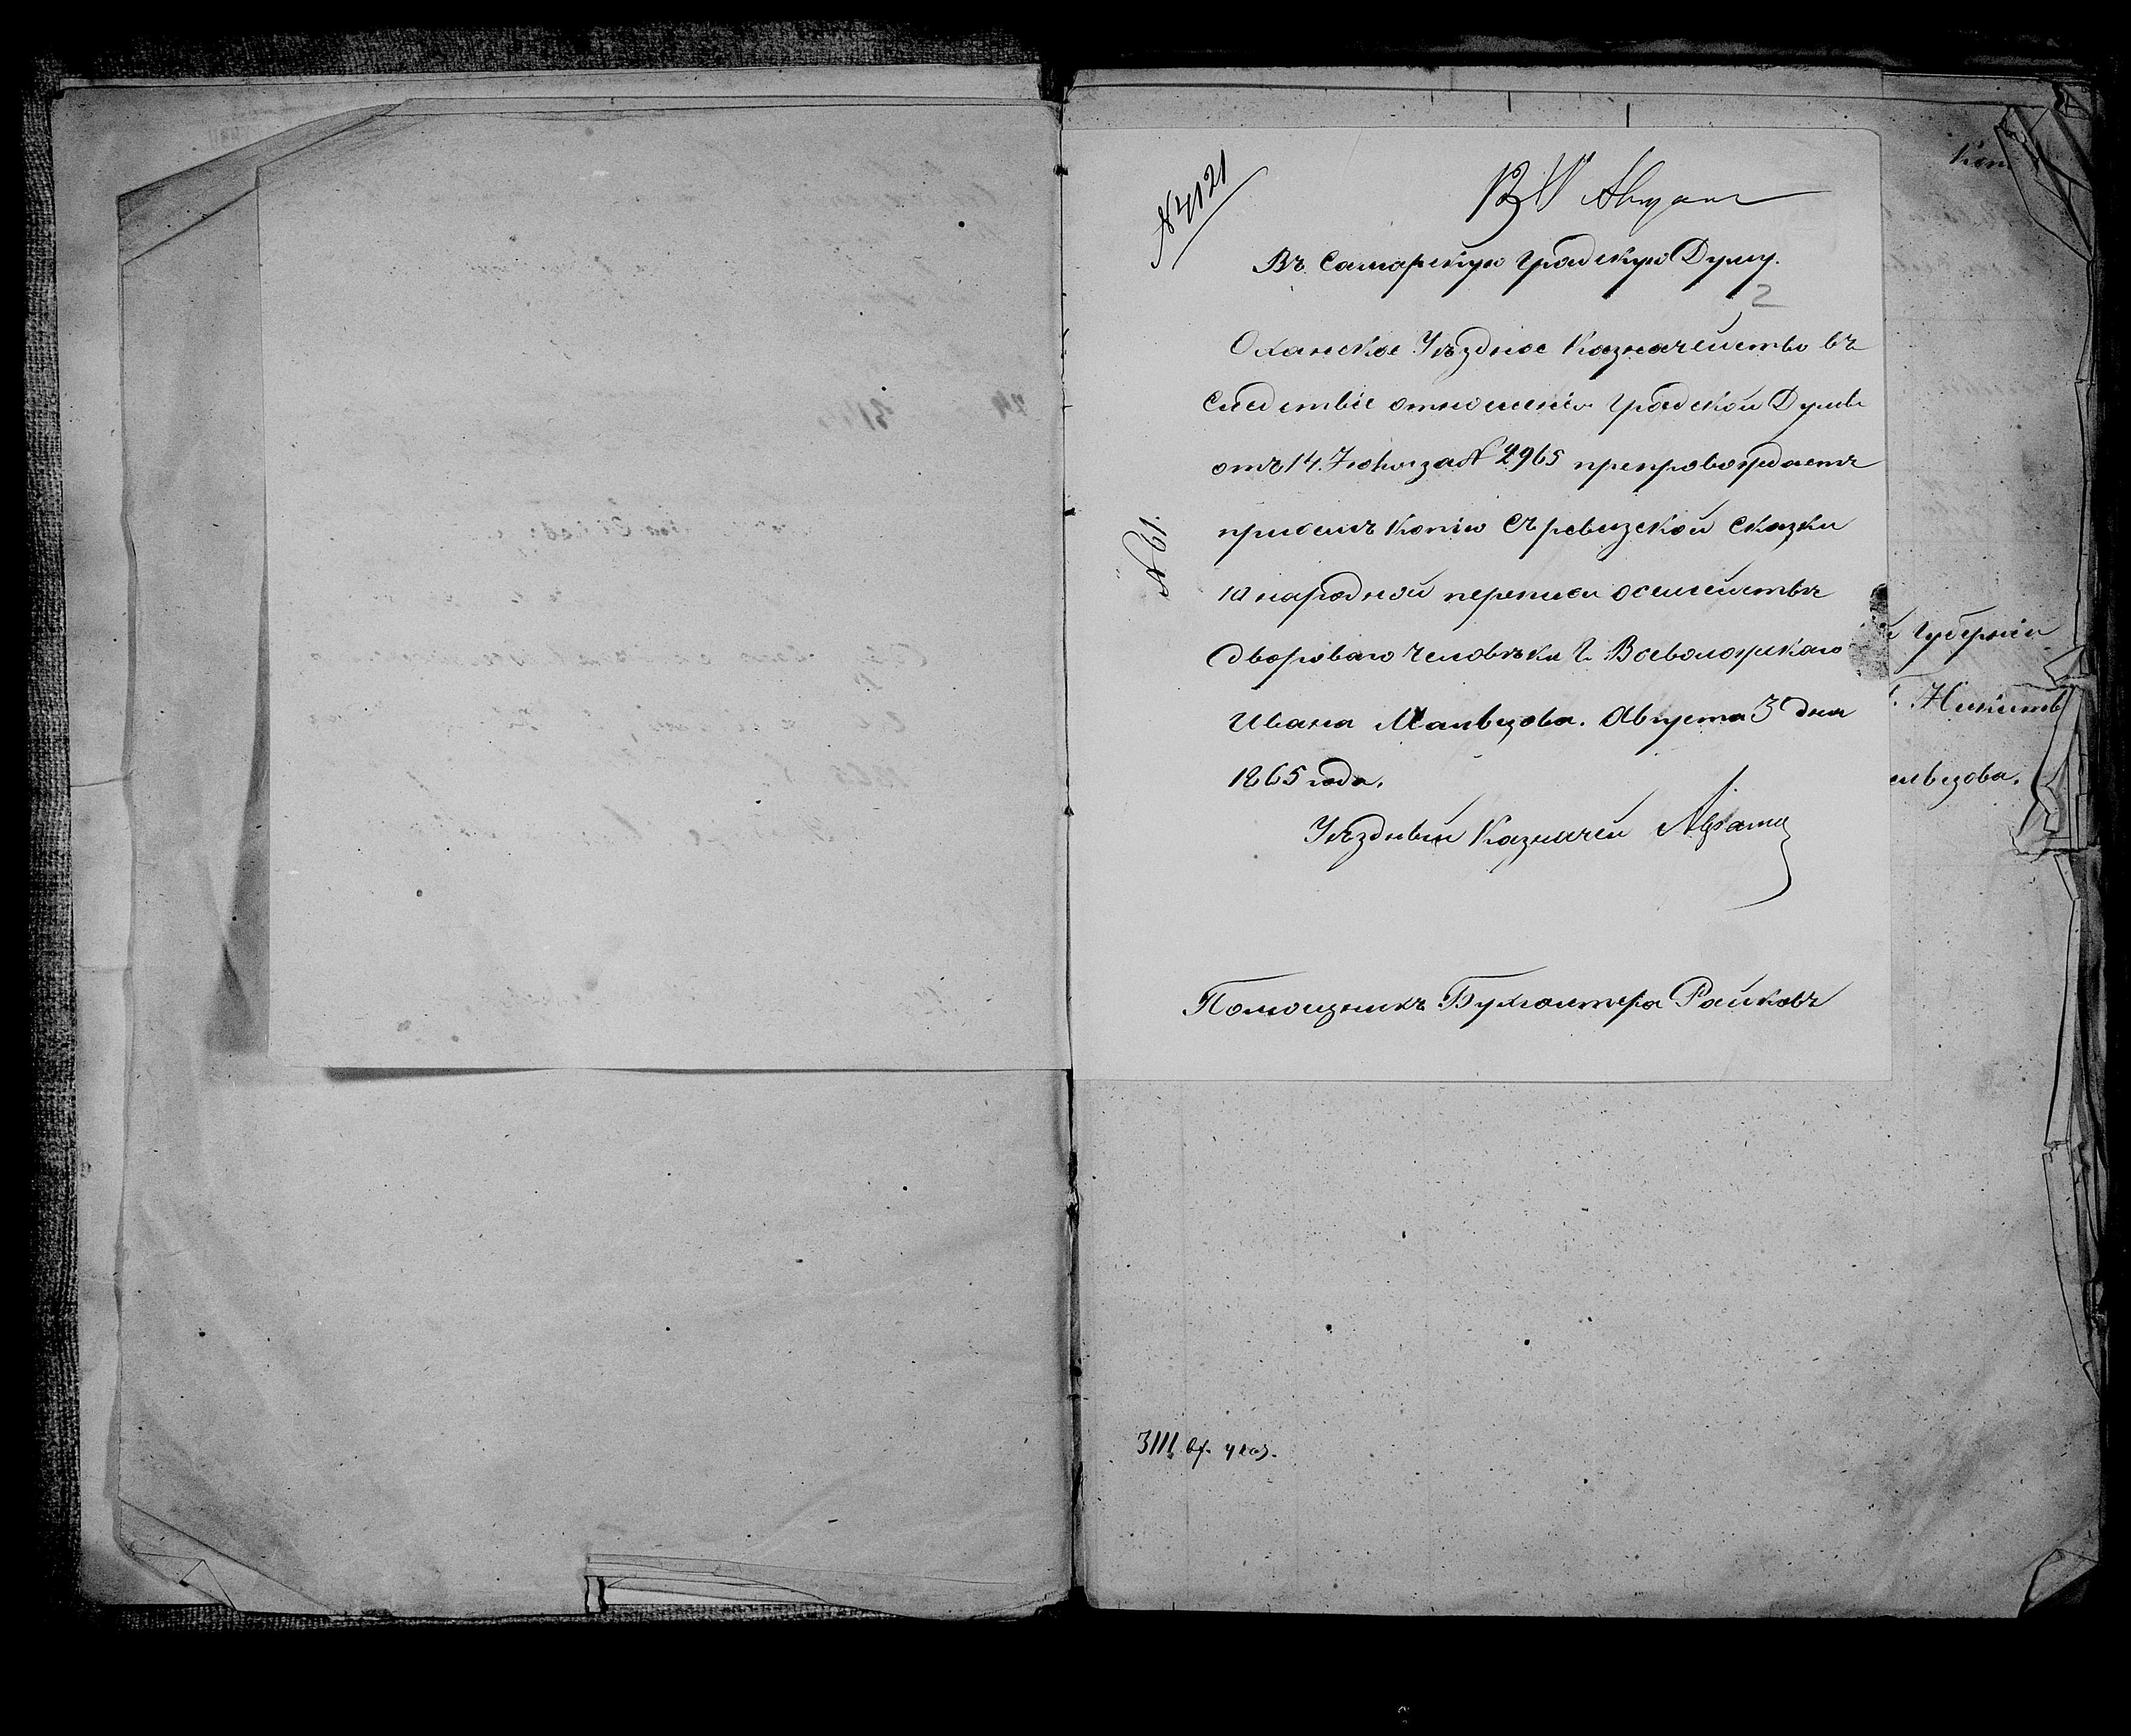 № 4121
13 Августа
Въ Самарскую Градскую Думу.
2
Оханское Уѣздное Казначейство въ
следствіе отношенія Градской Думы
отъ 14 Іюня за № 2965 препровождаетъ
присемъ копію съ ревизской сказки
10 народной переписи о семействѣ
двороваго человѣка Г. Всеволожскаго
Ивана Мальцова. Августа 3 дня
1865 года.
Уѣздный Казначей
Помощникъ Бухгалтера Райковъ
№ 61.
Коп
Губерніи
Никит
льцова.
3111